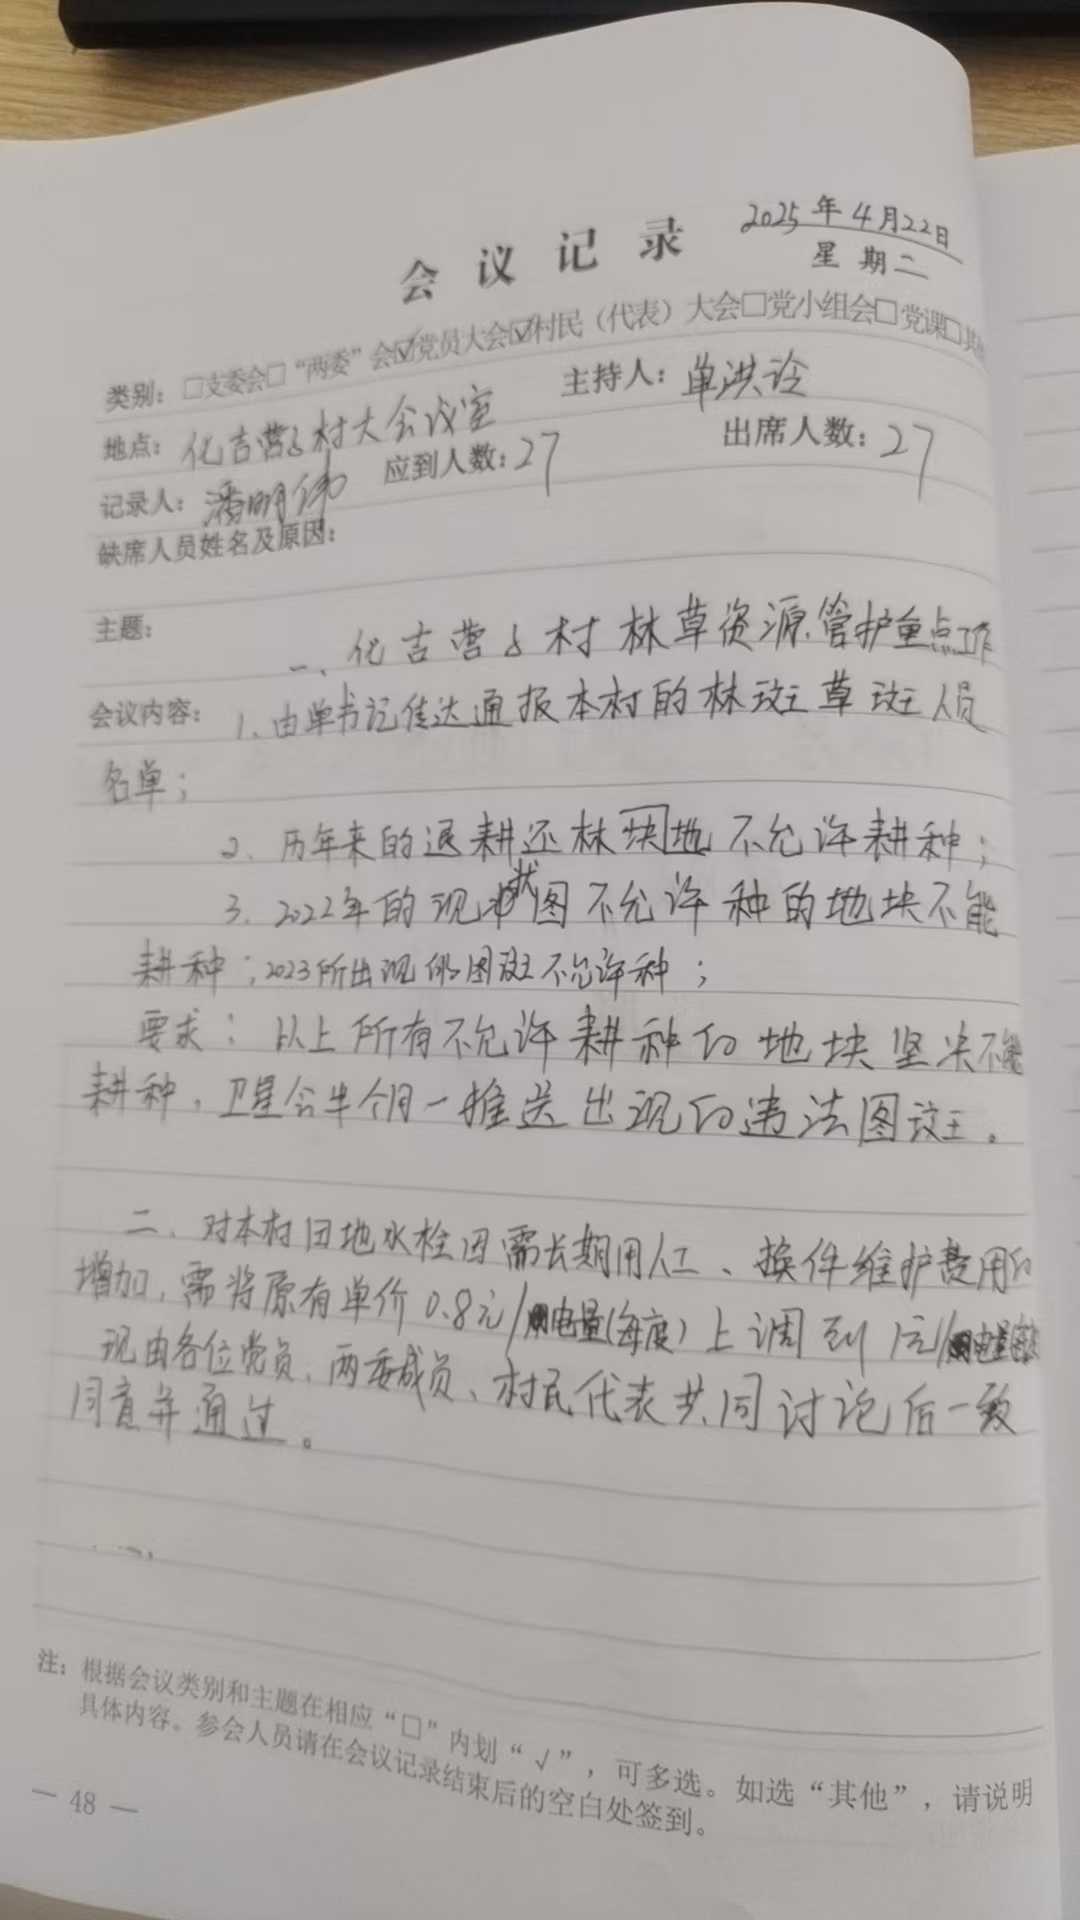 2025年4月22日
会议记录
星期二
类别：□支委会□“两委”会☑党员大会☑村民（代表）大会□党小组会□党课□其他
地点：化吉营子村大会议室 主持人：单洪
记录人：潘明伟 应到人数：27 出席人数：27
缺席人员姓名及原因：
主题：
一、化吉营子村林草资源管护重点工作
会议内容：1、由单书记传达通报本村的林斑草斑人员
名单；
2、历年来的退耕还林块地不允许耕种；
3、2022年的现状图不允许种的地块不能
耕种；2023所出现的图斑不允许种；
要求：以上所有不允许耕种的地块坚决不能
耕种，卫星会半个月一推送出现的违法图斑。
二、对本村田地水栓因需长期用人工、换件维护费用的
增加，需将原有单价0.8元/用电量(每度)上调到1元/用电量
现由各位党员、两委成员、村民代表共同讨论后一致
同意并通过。
注：根据会议类别和主题在相应“□”内划“√”，可多选。如选“其他”，请说明
具体内容。参会人员请在会议记录结束后的空白处签到。
— 48 —